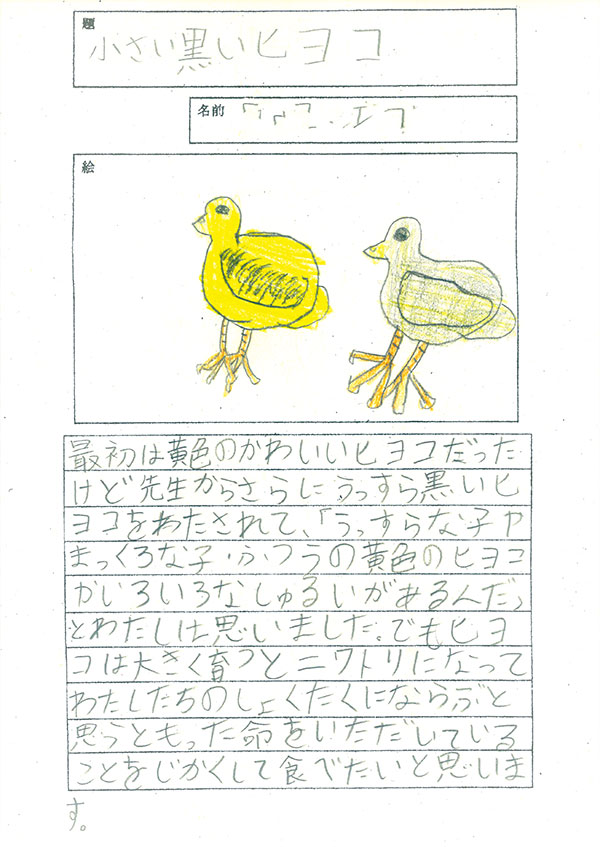 題
小さい黒いヒヨコ
名前
絵
最初は黄色のかわいいヒヨコだった
けど先生からさらにうっすら黒いヒ
ヨコをわたされて、「うっすらな子や
まっくろな子・ふつうの黄色のヒヨコ
かいろいろなしゅるいがあるんだ」
とわたしは思いました。でもヒヨ
コは大きく育つとニワトリになって
わたしたちのしょくたくにならぶと
思うともった命をいただいている
ことをじかくして食べたいと思いま
す。